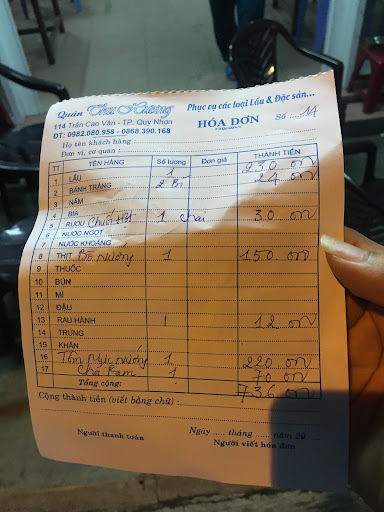 Quán Thu Hương
Phục vụ các loại Lẩu & Đặc sản...
114 Trần Cao Vân - TP. Quy Nhơn
ĐT: 0982.080.958 - 0868.390.168
HÓA ĐƠN
Số : 14
Họ tên khách hàng :
Đơn vị, cơ quan :
TT TÊN HÀNG Số lượng Đơn giá THÀNH TIỀN
1 LẨU 1 230
2 BÁNH TRÁNG 2 24
3 NẤM
4 BIA
5 RƯỢU Chuối Hột 1 chai 30
6 NƯỚC NGỌT
7 NƯỚC KHOÁNG
8 THỊT Bò nướng 1 150
9 THUỐC
10 BÚN
11 MÌ
12 ĐẬU
13 RAU HÀNH 1 12
14 TRỨNG
15 KHĂN
16 nướng 1 220
17 Chả Ram 1 70
Tổng cộng: 736
Cộng thành tiền (viết bằng chữ) :
Ngày ..... tháng ..... năm 20
Người thanh toán Người viết hóa đơn